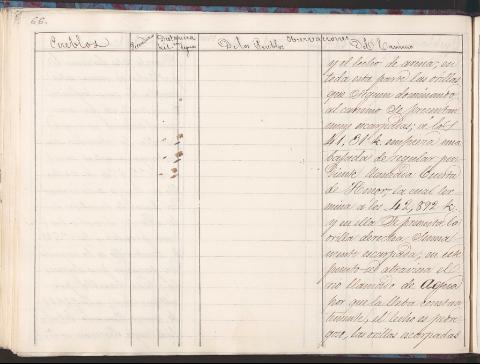 66.
Pueblos
Distancia
kil. legua
Observaciones
De los Pueblos
Del Camino
y el lecho de arena; en
toda esta parte las orillas
que siguen dominando
al camino se presentan
muy escarpadas; á los
41, k. empieza una
bajada de regular pen
diente llamada Cuesta
de la cual ter
mina á los 42,892 k.
y en ella se presenta la
orilla derecha suma
mente escarpada; en este
punto se atraviesa el
rio llamado de
por que la lleva constan
temente, el lecho es pedre
goso, las orillas escarpadas